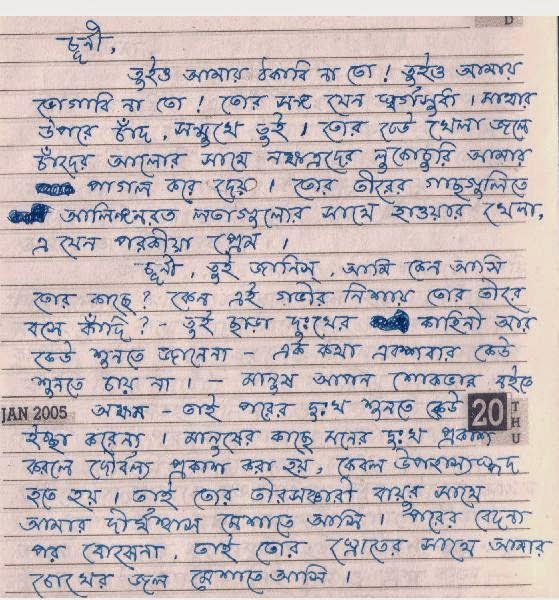 D
চূর্নী,
তুইও আমায় ঠকাবি না তো! তুইও আমায়
ভোগাবি না তো! তোর সঙ্গ যেন স্বর্গসুধা। মাথার
উপরে চাঁদ, সম্মুখে তুই। তোর ঢেউ খেলা জলে
চাঁদের আলোর সাথে নক্ষত্রদের লুকোচুরি আমায়
পাগল করে দেয়। তোর তীরের গাছগুলিতে
আলিঙ্গনরত লতাগুলোর সাথে হাওয়ার খেলা,
এ যেন পরকীয়া প্রেম।
চূর্নী, তুই জানিস্, আমি কেন আসি
তোর কাছে? কেন এই গভীর নিশায় তোর তীরে
বসে কাঁদি? - তুই ছাড়া দুঃখের কাহিনী আর
কেউ শুনতে জানেনা - একই কথা একশবার কেউ
শুনতে চায় না। - মানুষ আপন শোকভার বইতে
JAN 2005 অক্ষম - তাই পরের দুঃখ শুনতে কেউ 20 THU
ইচ্ছা করেনা। মানুষের কাছে মনের দুঃখ প্রকাশ
করলে দৌর্বল্য প্রকাশ করা হয়, কেবল উপহাসাস্পদ
হতে হয়। তাই তোর তীরসঞ্চারী বায়ুর সাথে
আমার দীর্ঘশ্বাস মেশাতে আসি। পরের বেদনা
পর বোঝেনা, তাই তোর স্রোতের সাথে আমার
চোখের জল মেশাতে আসি।